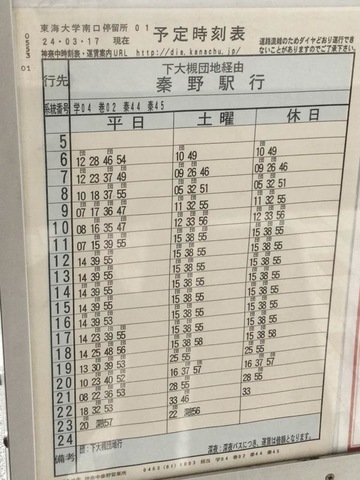 東海大学南口停留所 01 予定時刻表
24・03・17 現在
神奈中時刻表・運賃案内URL http://dia.kanachu.jp/
道路混雑のためダイヤどおり運行でき
ないことがありますのでご了承下さい。
0553
01
行先 下大槻団地経由
秦野駅 行
系統番号 学04 巻02 秦44 秦45
平日 土曜 休日
5
6 12 28 46 54 10 49 10 49
7 12 23 37 49 09 26 46 09 26 46
8 10 18 37 55 05 32 51 05 32 51
9 07 17 36 47 11 32 55 11 32 55
10 08 16 35 47 12 33 56 12 33 56
11 07 15 39 55 15 38 55 15 38 55
12 14 39 55 15 38 55 15 38 55
13 14 39 55 15 38 55 15 38 55
14 14 39 55 15 38 55 15 38 55
15 14 39 55 15 38 55 15 38 55
16 14 39 53 15 38 55 15 38 55
17 14 23 39 55 15 38 55 15 38 55
18 14 25 48 56 15 38 58 15 38 58
19 13 30 39 53 25 55 25 55
20 10 23 40 52 16 37 57 16 37 57
21 08 22 36 53 28 55 28 55
22 18 32 53 33 33
23 20 深57 22 深56
24
備考 団:下大槻団地行
深夜:深夜バスにつき、運賃は倍額となります。